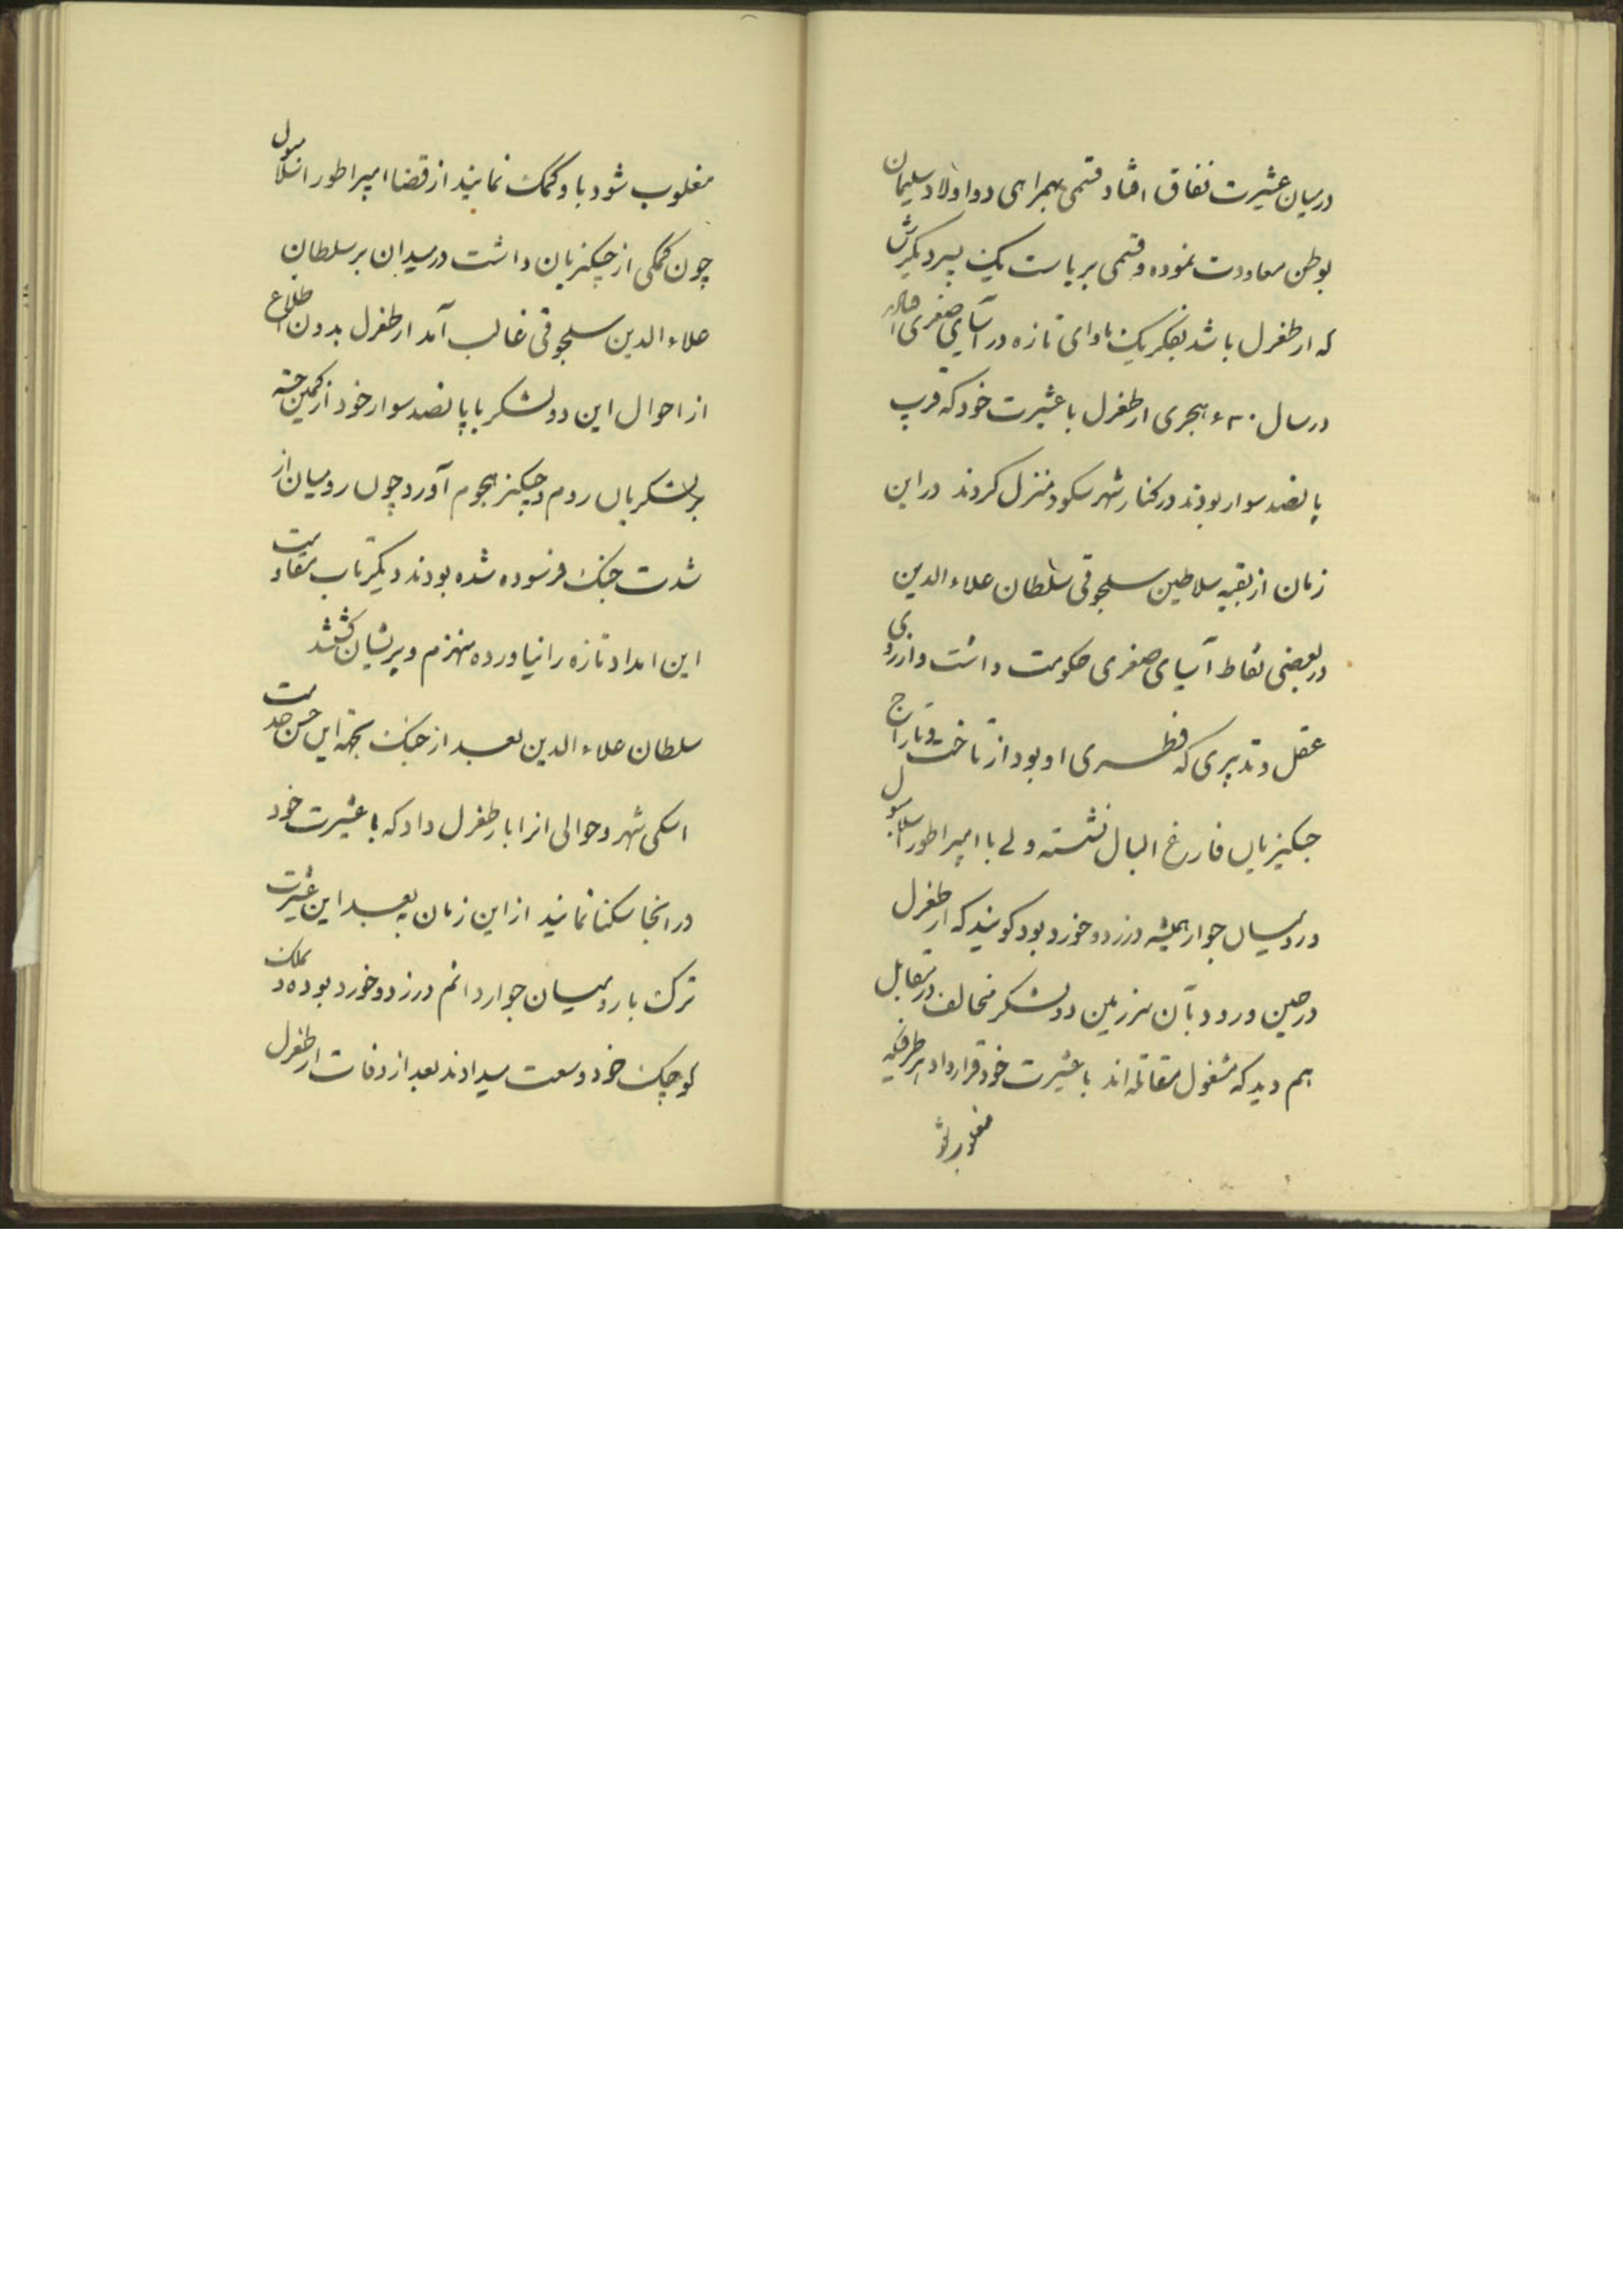 درمیان عشیرت نفاق افتاد قسمی بهمراهی دو اولاد سلیمان
بوطن معاودت نموده و قسمی بریاست یک پسر دیگرش
که ارطغرل باشد بفکر یک ماوای تازه در آسیای صغری
در سال ۶۳۰ هجری ارطغرل با عشیرت خود که قریب
پانصد سوار بودند در کنار شهر سکود منزل کردند در این
زمان از بقیه سلاطین سلجوقی سلطان علاء الدین
در بعضی نقاط آسیای صغری حکومت داشت و از روی
عقل و تدبیری که فطری او بود از تاخت و تاراج
چنکیزیان فارغ البال نشسته ولی با امپراطور اسلامبول
و رومیان جوار همیشه در زد و خورد بود کویند که ارطغرل
در حین ورود بآن سرزمین دو لشکر مخالف در مقابل
هم دید که مشغول مقاتله اند با عشیرت خود قرار داد هر طرفیکه
مغلوب شو
مغلوب شود باو کمک نمایند از قضا امپراطور اسلامبول
چون کمکی از چنکیزیان داشت در میدان بر سلطان
علاء الدین سلجوقی غالب آمد ارطغرل بدون اطلاع
از احوال این دو لشکر با پانصد سوار خود از کمین جسته
بر لشکریان روم و چنکیز هجوم آورد چون رومیان از
شدت جنک فرسوده شده بودند دیکر تاب مقاومت
این امداد تازه را نیاورده منهزم و پریشان کشتند
سلطان علاء الدین بعد از جنک بجهة این حسن خدمت
اسکی شهر و حوالی انرا بارطغرل داد که با عشیرت خود
در انجا سکنا نمایند از این زمان به بعد این عشیرت
ترک با رومیان جوار دائم در زد و خورد بوده و ملک
کوچک خود وسعت میدادند بعد از وفات ارطغرل